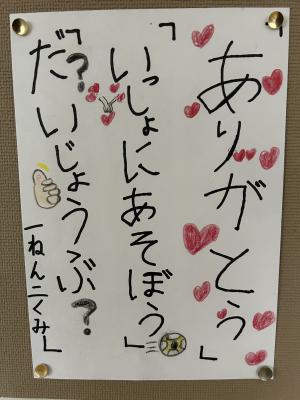 「ありがとう」
「いっしょにあそぼう」
「だいじょうぶ??」
一ねん二くみ